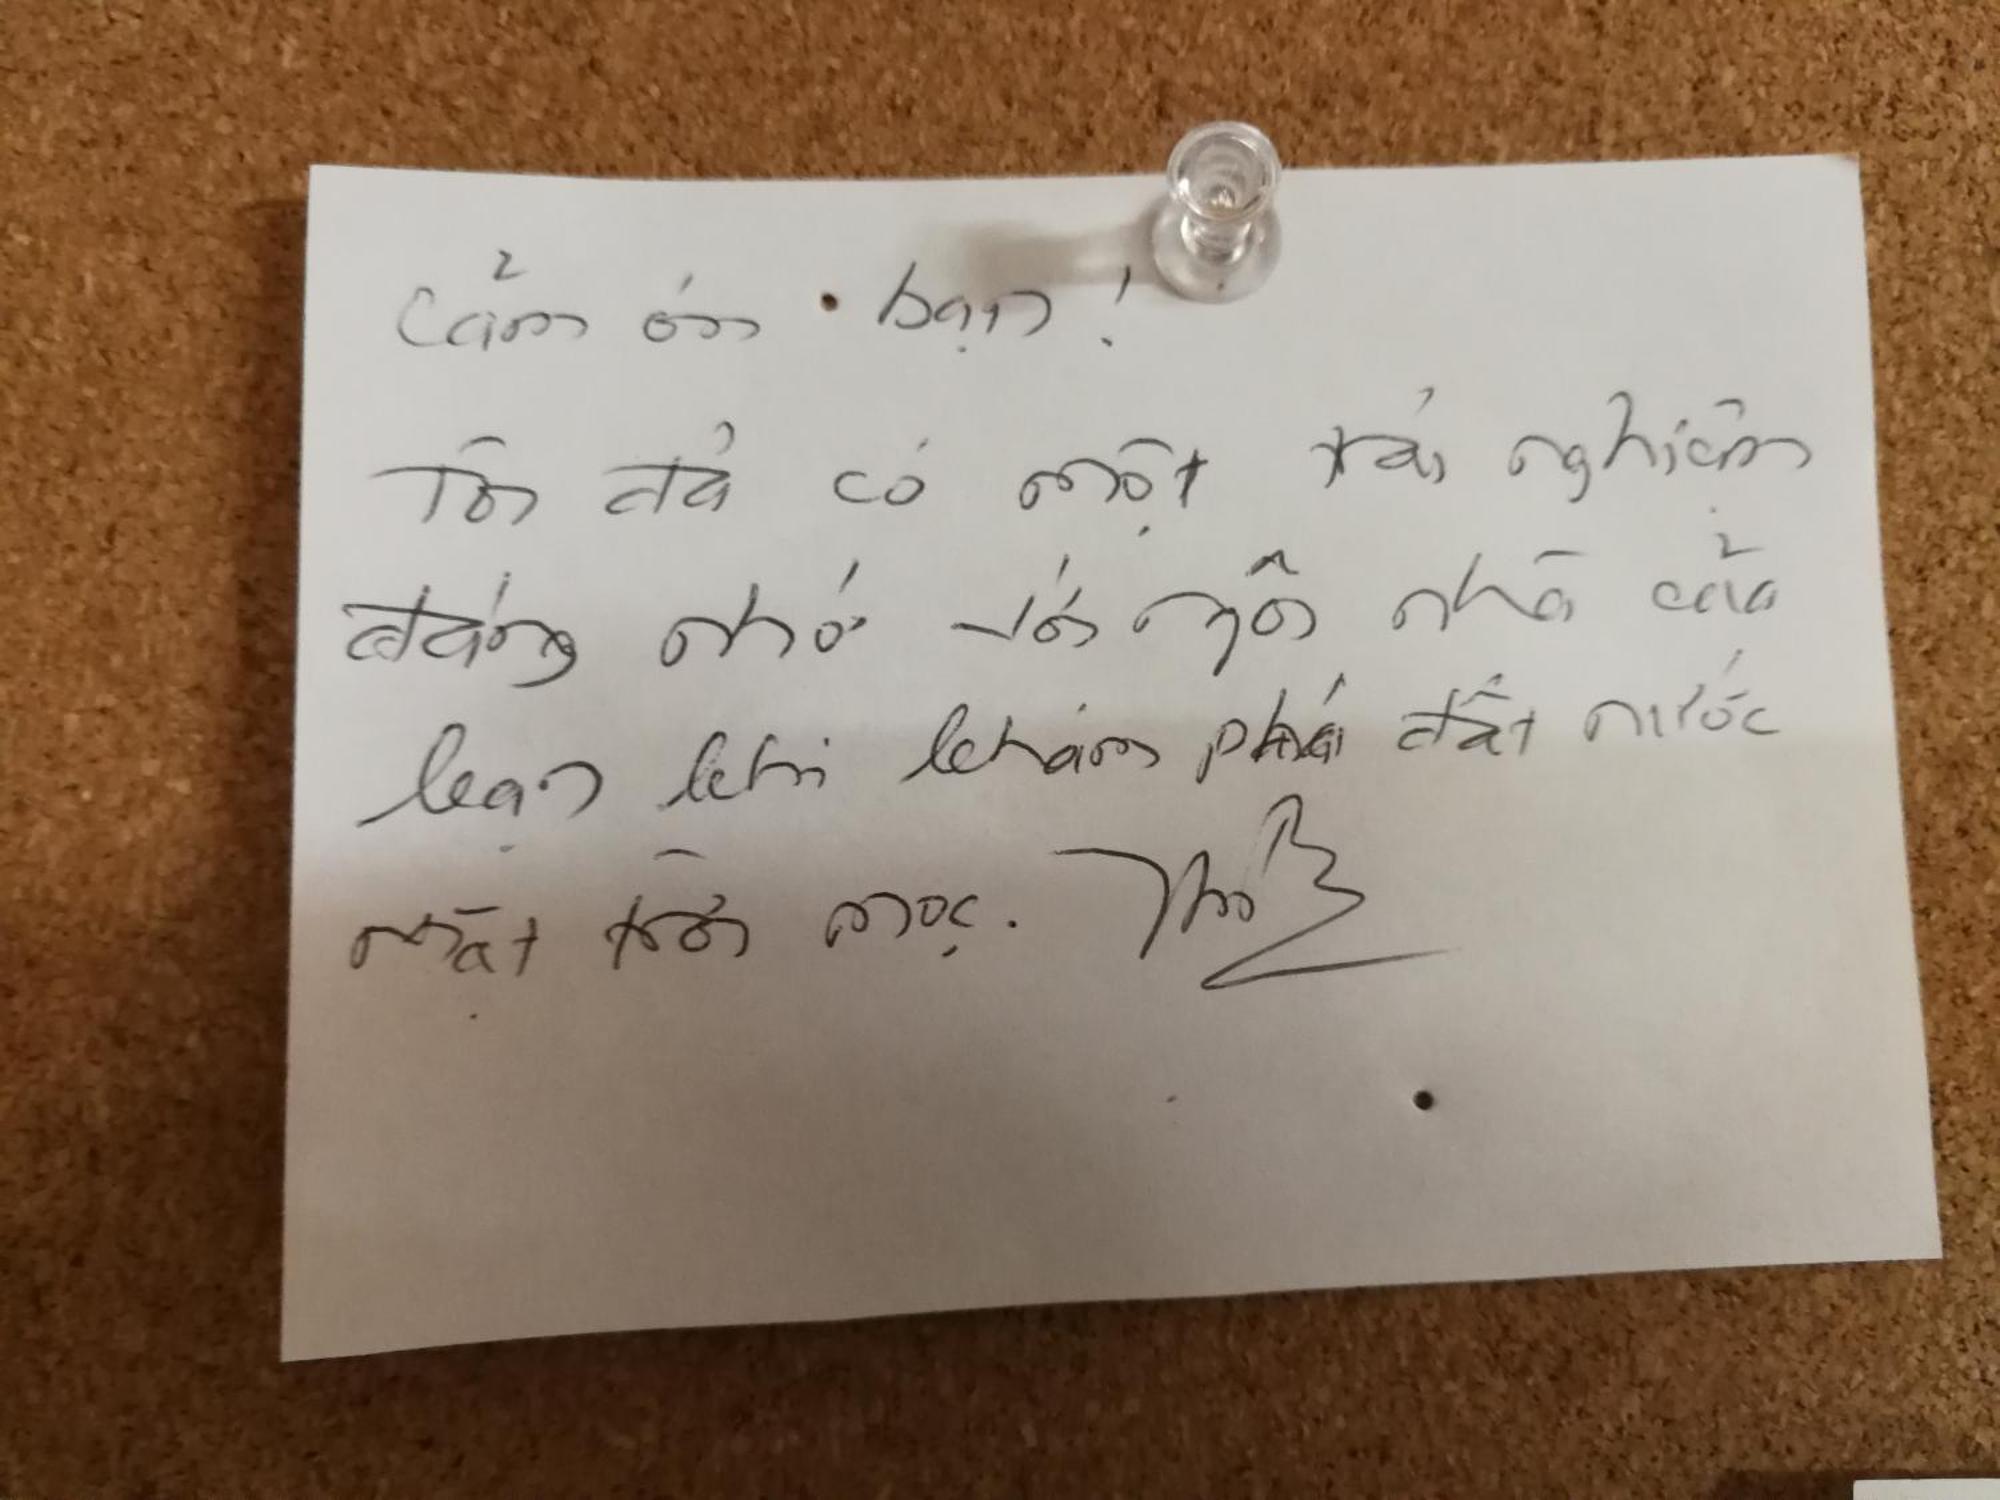 Cảm ơn bạn!
Tôi đã có một trải nghiệm
đáng nhớ với ngôi nhà của
bạn khi khám phá đất nước
mặt trời mọc.